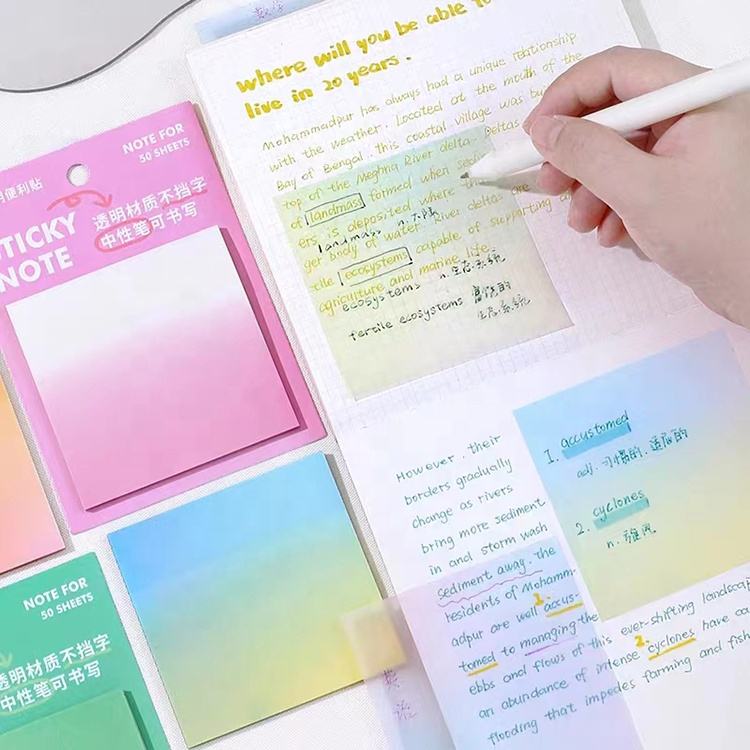 数学
where will you be able to
live in 20 years.
Mohammadpur has always had a unique relationship
with the weather. Located at the mouth of the
Bay of Bengal, this coastal village was
top of the Meghna River delta. Deltas
of landmass formed when
ers is deposited where
landmass n. 大陆
get body of water. River deltas are
tile ecosystems capable of supporting
ecosystems n. 生态系统
agriculture and marine life.
fertile ecosystems 富饶的
生态系统
However, their
borders gradually
change as rivers
bring more sediment
in and storm wash
sediment away. The
residents of Mohamm-
adpur are well accus-
tomed to managing the
ebbs and flows of this ever-shifting landscap
an abundance of intense cyclones have
flooding that impedes farming and fish
1.
2.
1. accustomed
adj. 习惯的. 适应的
2. cyclones
n. 强风
英语
便利贴
STICKY
NOTE
NOTE FOR
50 SHEETS
透明材质不挡字
中性笔可书写
NOTE FOR
50 SHEETS
透明材质不挡字
中性笔可书写